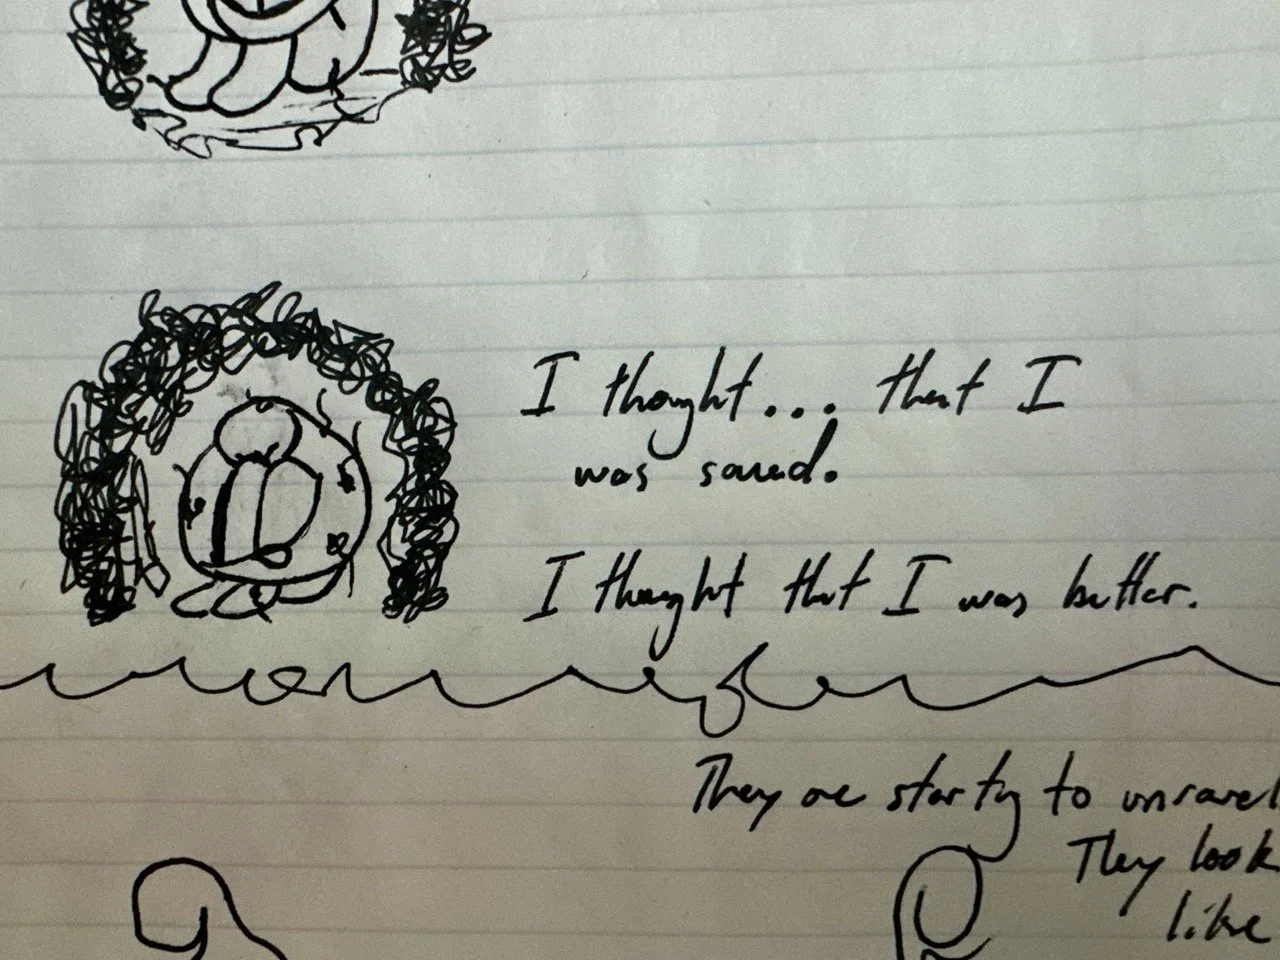 I thought... that I
was saved.
I thought that I was better.
They are starting to unravel
They look
like